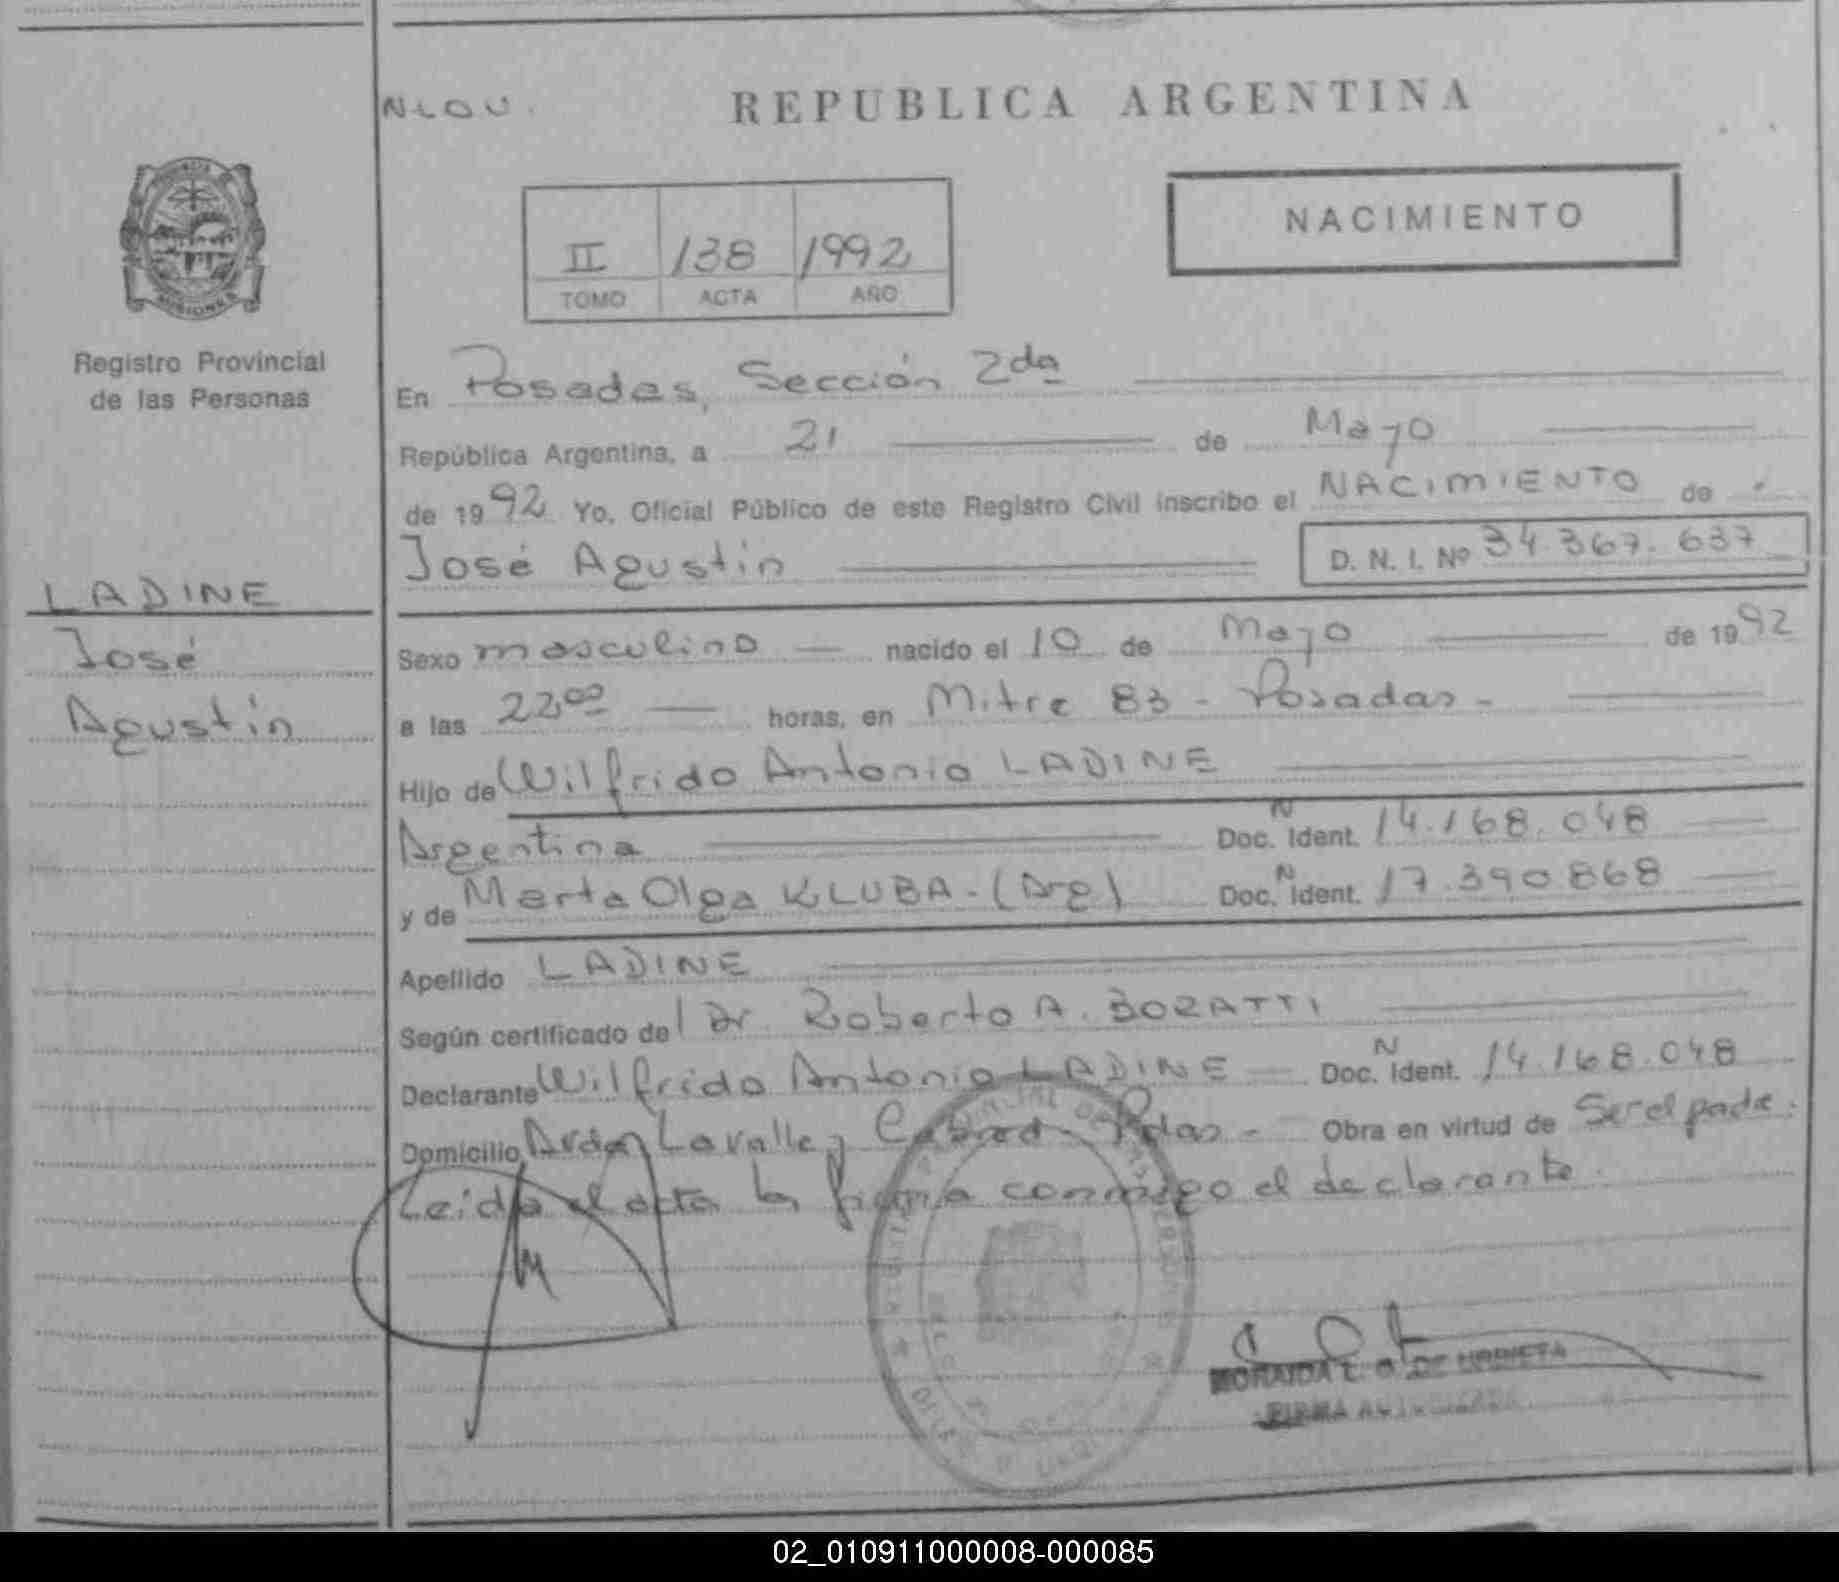 N L O U.
REPUBLICA ARGENTINA
NACIMIENTO
II 138 1992
TOMO ACTA AÑO
MISIONES
Registro Provincial
de las Personas
LADINE
José
Agustín
En Posadas, Sección 2da
República Argentina, a 21 de Mayo
de 1992 Yo, Oficial Público de este Registro Civil inscribo el NACIMIENTO de
José Agustín D. N. I. Nº 34.367.637
Sexo masculino nacido el 10 de Mayo de 1992
a las 22 00 horas, en Mitre 83 - Posadas -
Hijo de Wilfrido Antonio LADINE
Argentina Doc. N Ident. 14.168.048
y de Marta Olga KLUBA - (Arg) Doc. N Ident. 17.390.868
Apellido LADINE
Según certificado de Dr. Roberto A. BOZATTI
Declarante Wilfrido Antonio LADINE Doc. N Ident. 14.168.048
Domicilio Lavalle y Obra en virtud de Ser el padre.
Leida el acta la firma conmigo el declarante.
DE URRIETA
FIRMA AUTORIZADA
02_010911000008-000085